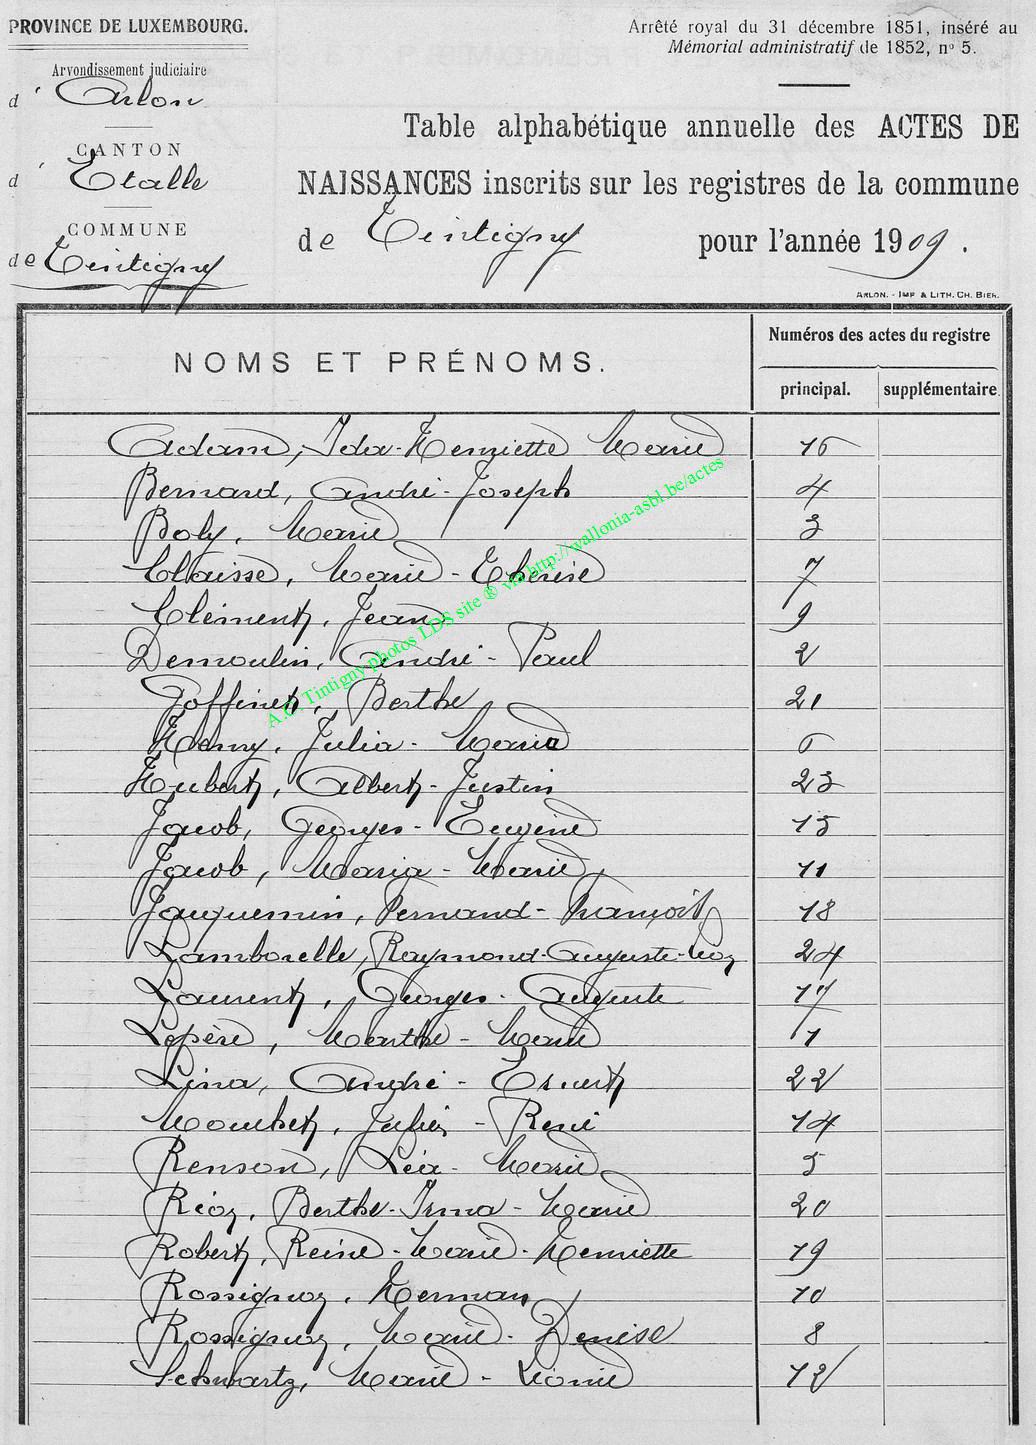 PROVINCE DE LUXEMBOURG.
Arrondissement judiciaire
d' Arlon
CANTON
d' Etalle
COMMUNE
de Tintigny
Arrêté royal du 31 décembre 1851, inséré au
Mémorial administratif de 1852, nº 5.
Table alphabétique annuelle des ACTES DE
NAISSANCES inscrits sur les registres de la commune
de Tintigny pour l'année 1909.
ARLON. - IMP. & LITH. CH. BIER.
NOMS ET PRÉNOMS.
Numéros des actes du registre
principal. supplémentaire.
Adam, Ida-Henriette Marie 16
Bernard, André-Joseph 4
Boly, Marie 3
Claisse, Marie-Thérèse 7
Clément, Jean 9
Demoulin, André-Paul 2
Goffinet, Berthe 21
Henry, Julia-Maria 6
Hubert, Albert-Justin 23
Jacob, Georges-Eugène 15
Jacob, Maria-Marie 11
Jacquemin, Fernand-François 18
Lamborelle, Raymond-Auguste-Léon 24
Laurent, Georges-Auguste 17
Lepère, Marthe-Marie 1
Lina, André-Ernest 22
Mouchet, Julien-René 14
Renson, Léa-Marie 5
Réon, Berthe-Irma-Marie 20
Robert, Reine-Marie-Henriette 19
Rossignon, Herman 10
Rossignon, Marie-Denise 8
Schwartz, Marie-Léonie 12
A.C. Tintigny photos LDS site ® via http://wallonia-asbl.be/actes